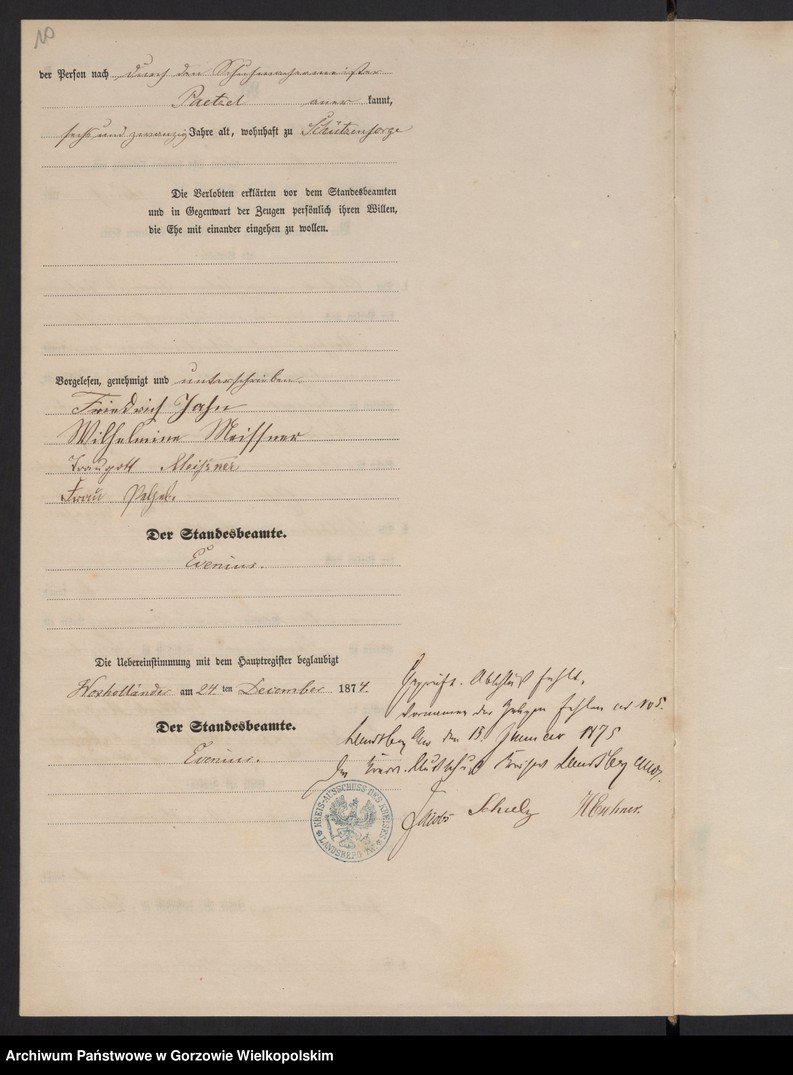 10
der Person nach durch den Schuhmachermeister
Paetzel aner kannt,
sechs und zwanzig Jahre alt, wohnhaft zu Stützensorge
Die Verlobten erklärten vor dem Standesbeamten
und in Gegenwart der Zeugen persönlich ihren Willen,
die Ehe mit einander eingehen zu wollen.
Vorgelesen, genehmigt und unterschrieben.
Friedrich Jahn
Wilhelmine Meissner
Traugott Meissner
Frau
Der Standesbeamte.
Evenius.
Die Uebereinstimmung mit dem Hauptregister beglaubigt
am 24 ten December 1874.
Der Standesbeamte.
Evenius.
Geprüft. Abschluß fehlt.
Vornamen der Zeugen fehlen
den 15 Januar 1875
Der Kreis-Ausschuß Kreises Landsberg
Jacobs Schulz
KREIS-AUSSCHUSS DES KREISES
LANDSBERG A/W
Archiwum Państwowe w Gorzowie Wielkopolskim